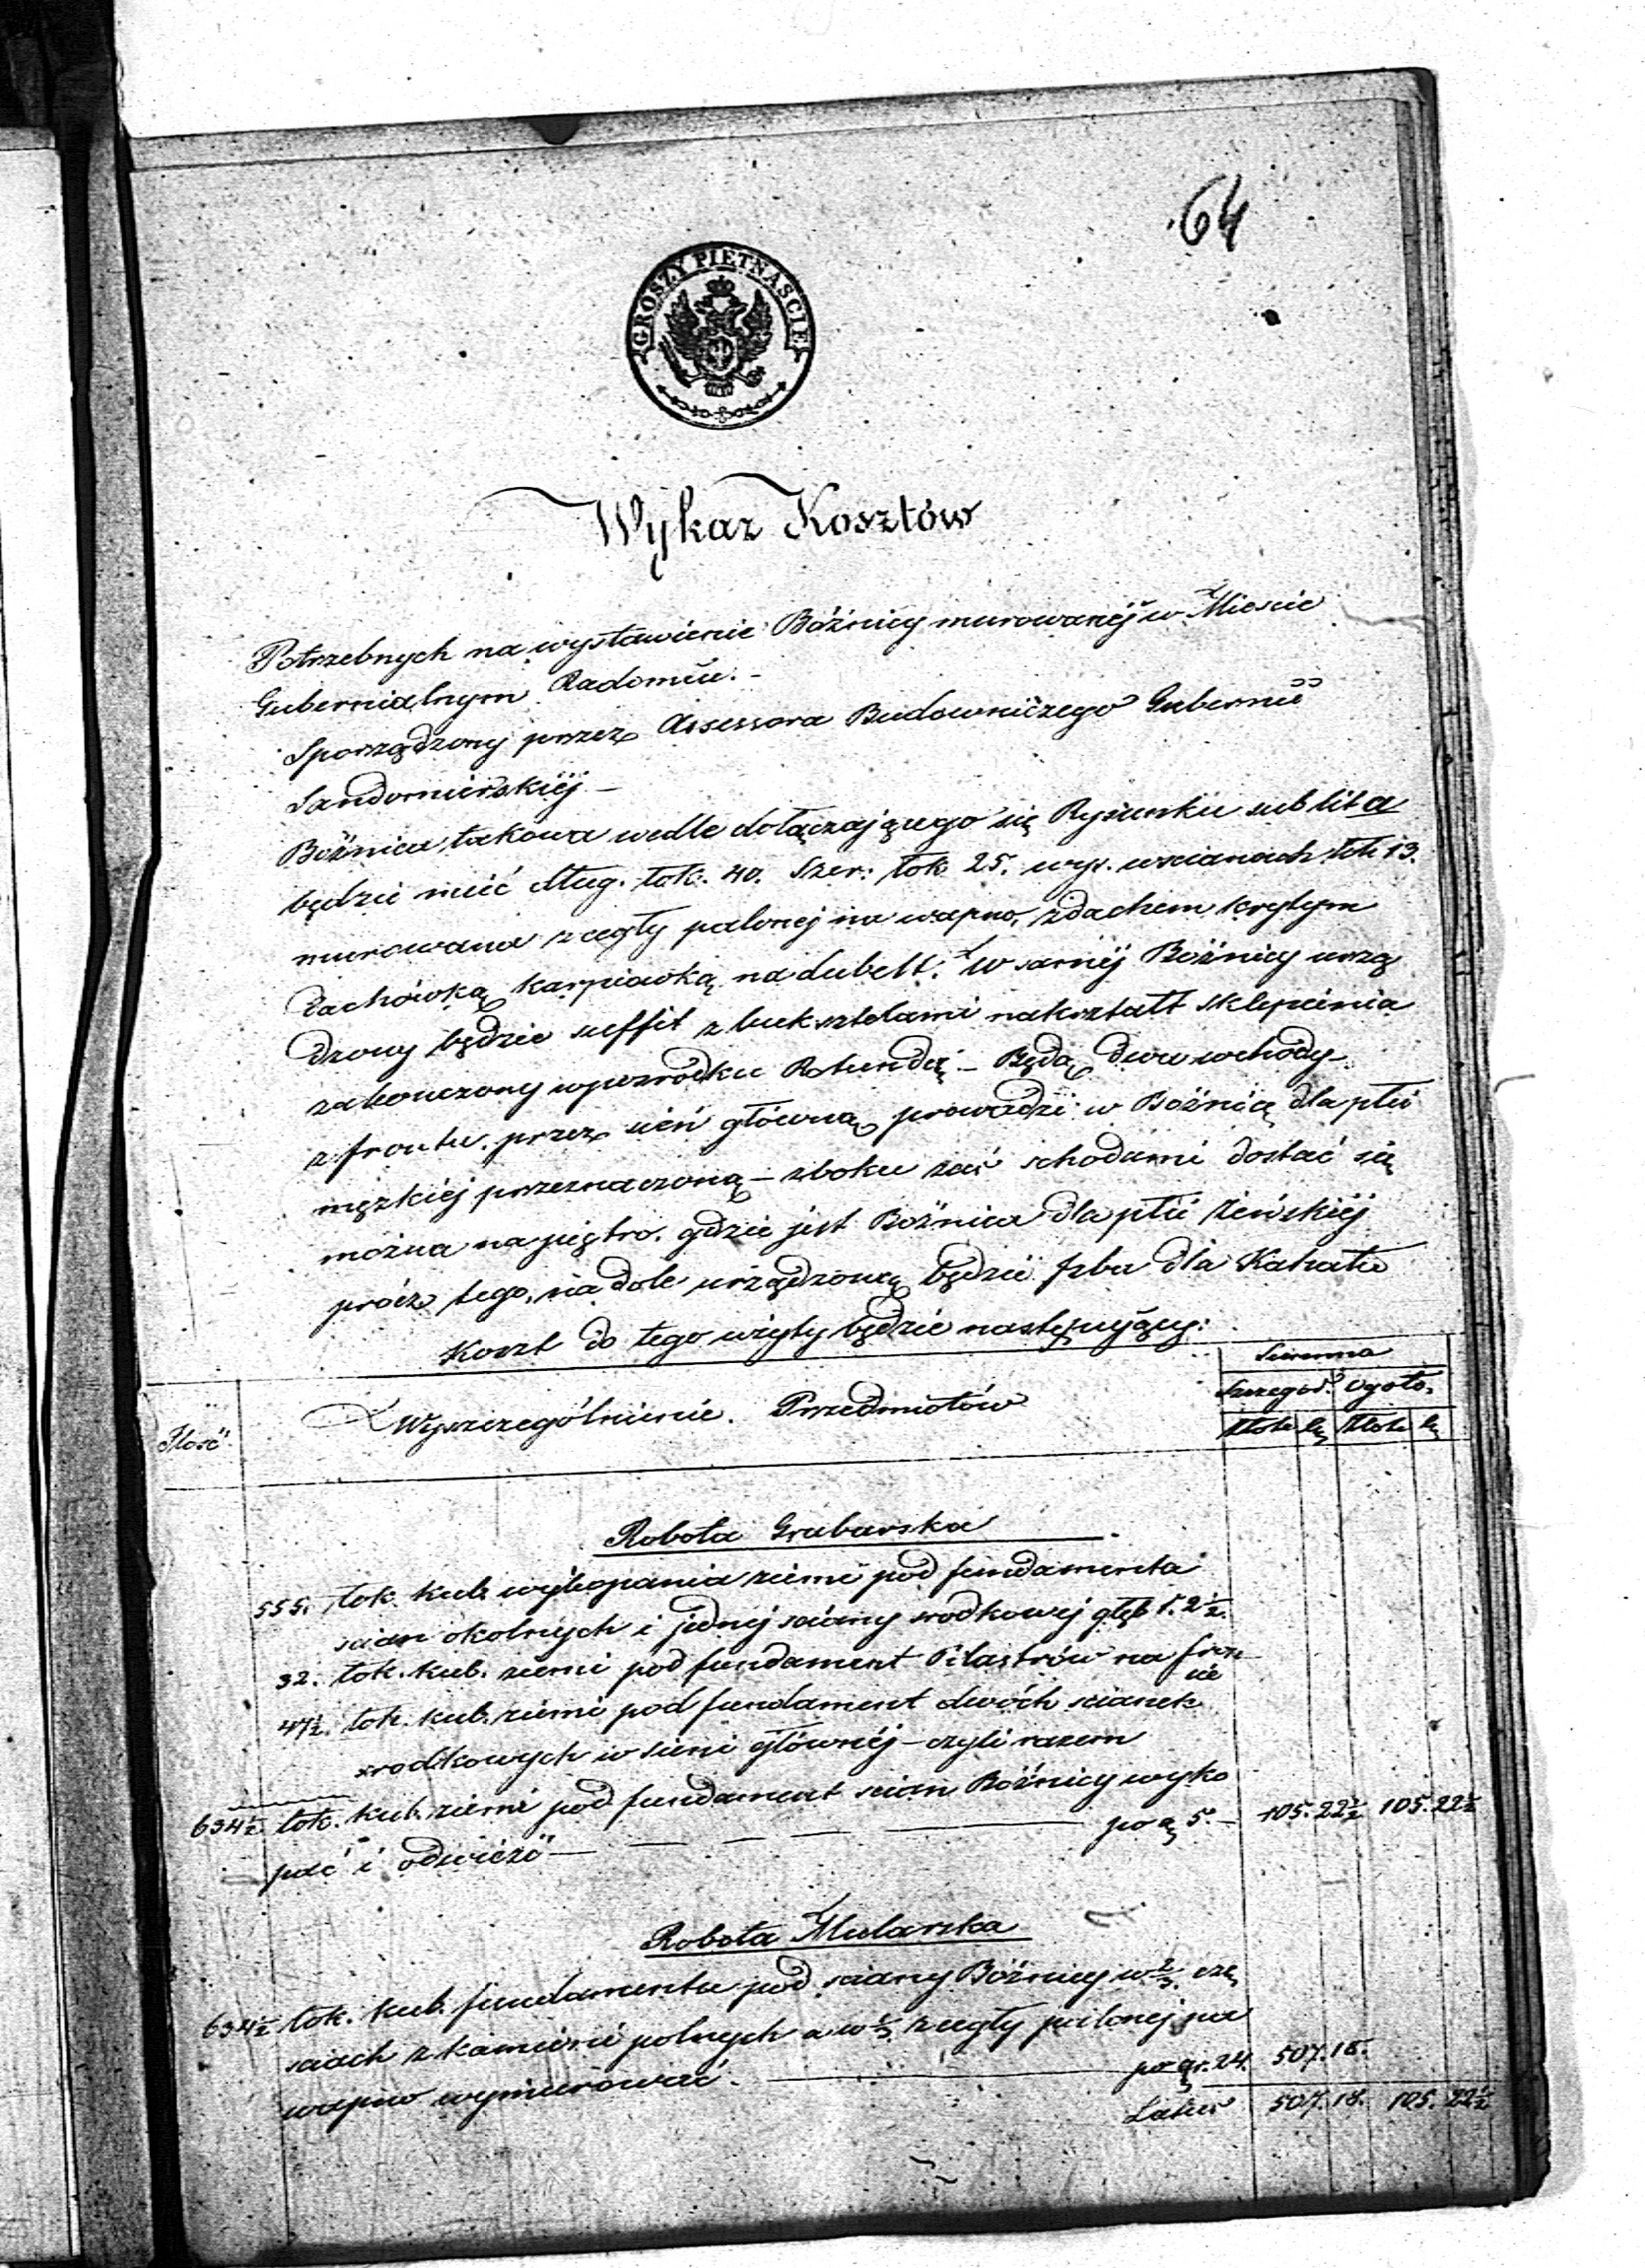 64
GROSZY PIETNAŚCIE
Wykaz Kosztów
Potrzebnych na wystawienie Bóżnicy murowanéj w Mieście
Gubernialnym Radomiu. -
Sporządzony przez Assessora Budowniczego Gubernii
Sandomierskiéj -
Bóżnica takowa wedle dołączającego się Rysunku sub lit a
będzie mieć dług. łok. 40. Szer: łok 25. wys. w scianach łok 13.
murowana z cegły palonej na wapno, z dachem krytym
dachówką karpiówką na dubelt. W saméj Bóżnicy urzą
dzony będzie suffit z buksztelami nakształt sklepienia
zakończony w pośrodku Rotundą - Będą dwa wchody
z frontu przez sień główną prowadzi w Bożnicę dla płci
męzkiéj przeznaczoną - z boku zaś schodami dostać się
można na piętro. gdzie jest Bożnica dla płci żeńskiéj
prócz tego, na dole urządzoną będzie Izba dla Kahału
Koszt do tego użyty będzie następujący:
Ilość
Wyszczególnienie Przedmiotów
Summa
Szczegół. Ogoło.
Złote gr Złote gr
Robota Grabarska
555. łok. kub. wykopania ziemi pod fundamenta
scian okolnych i jednej sciany srodkowej głęb ł. 2½.
32. łok. kub. ziemi pod fundament Pilastrów na fron
cie
47½. łok. kub. ziemi pod fundament dwóch scianek
srodkowych w sieni głównéj - czyli razem
634½ łok. kub. ziemi pod fundament scian Bóżnicy wyko
pać i odwieźć — — — — po gr 5. - 105. 22½ 105. 22½
Robota Mularska
634½ łok. kub. fundamentu pod sciany Bóżnicy w ⅔ czę
sciach z kamieni polnych a w ⅓ z cegły palonej na
wapno wymurować. — po gr. 24. 507. 18.
Latus 507. 18. 105. 22½